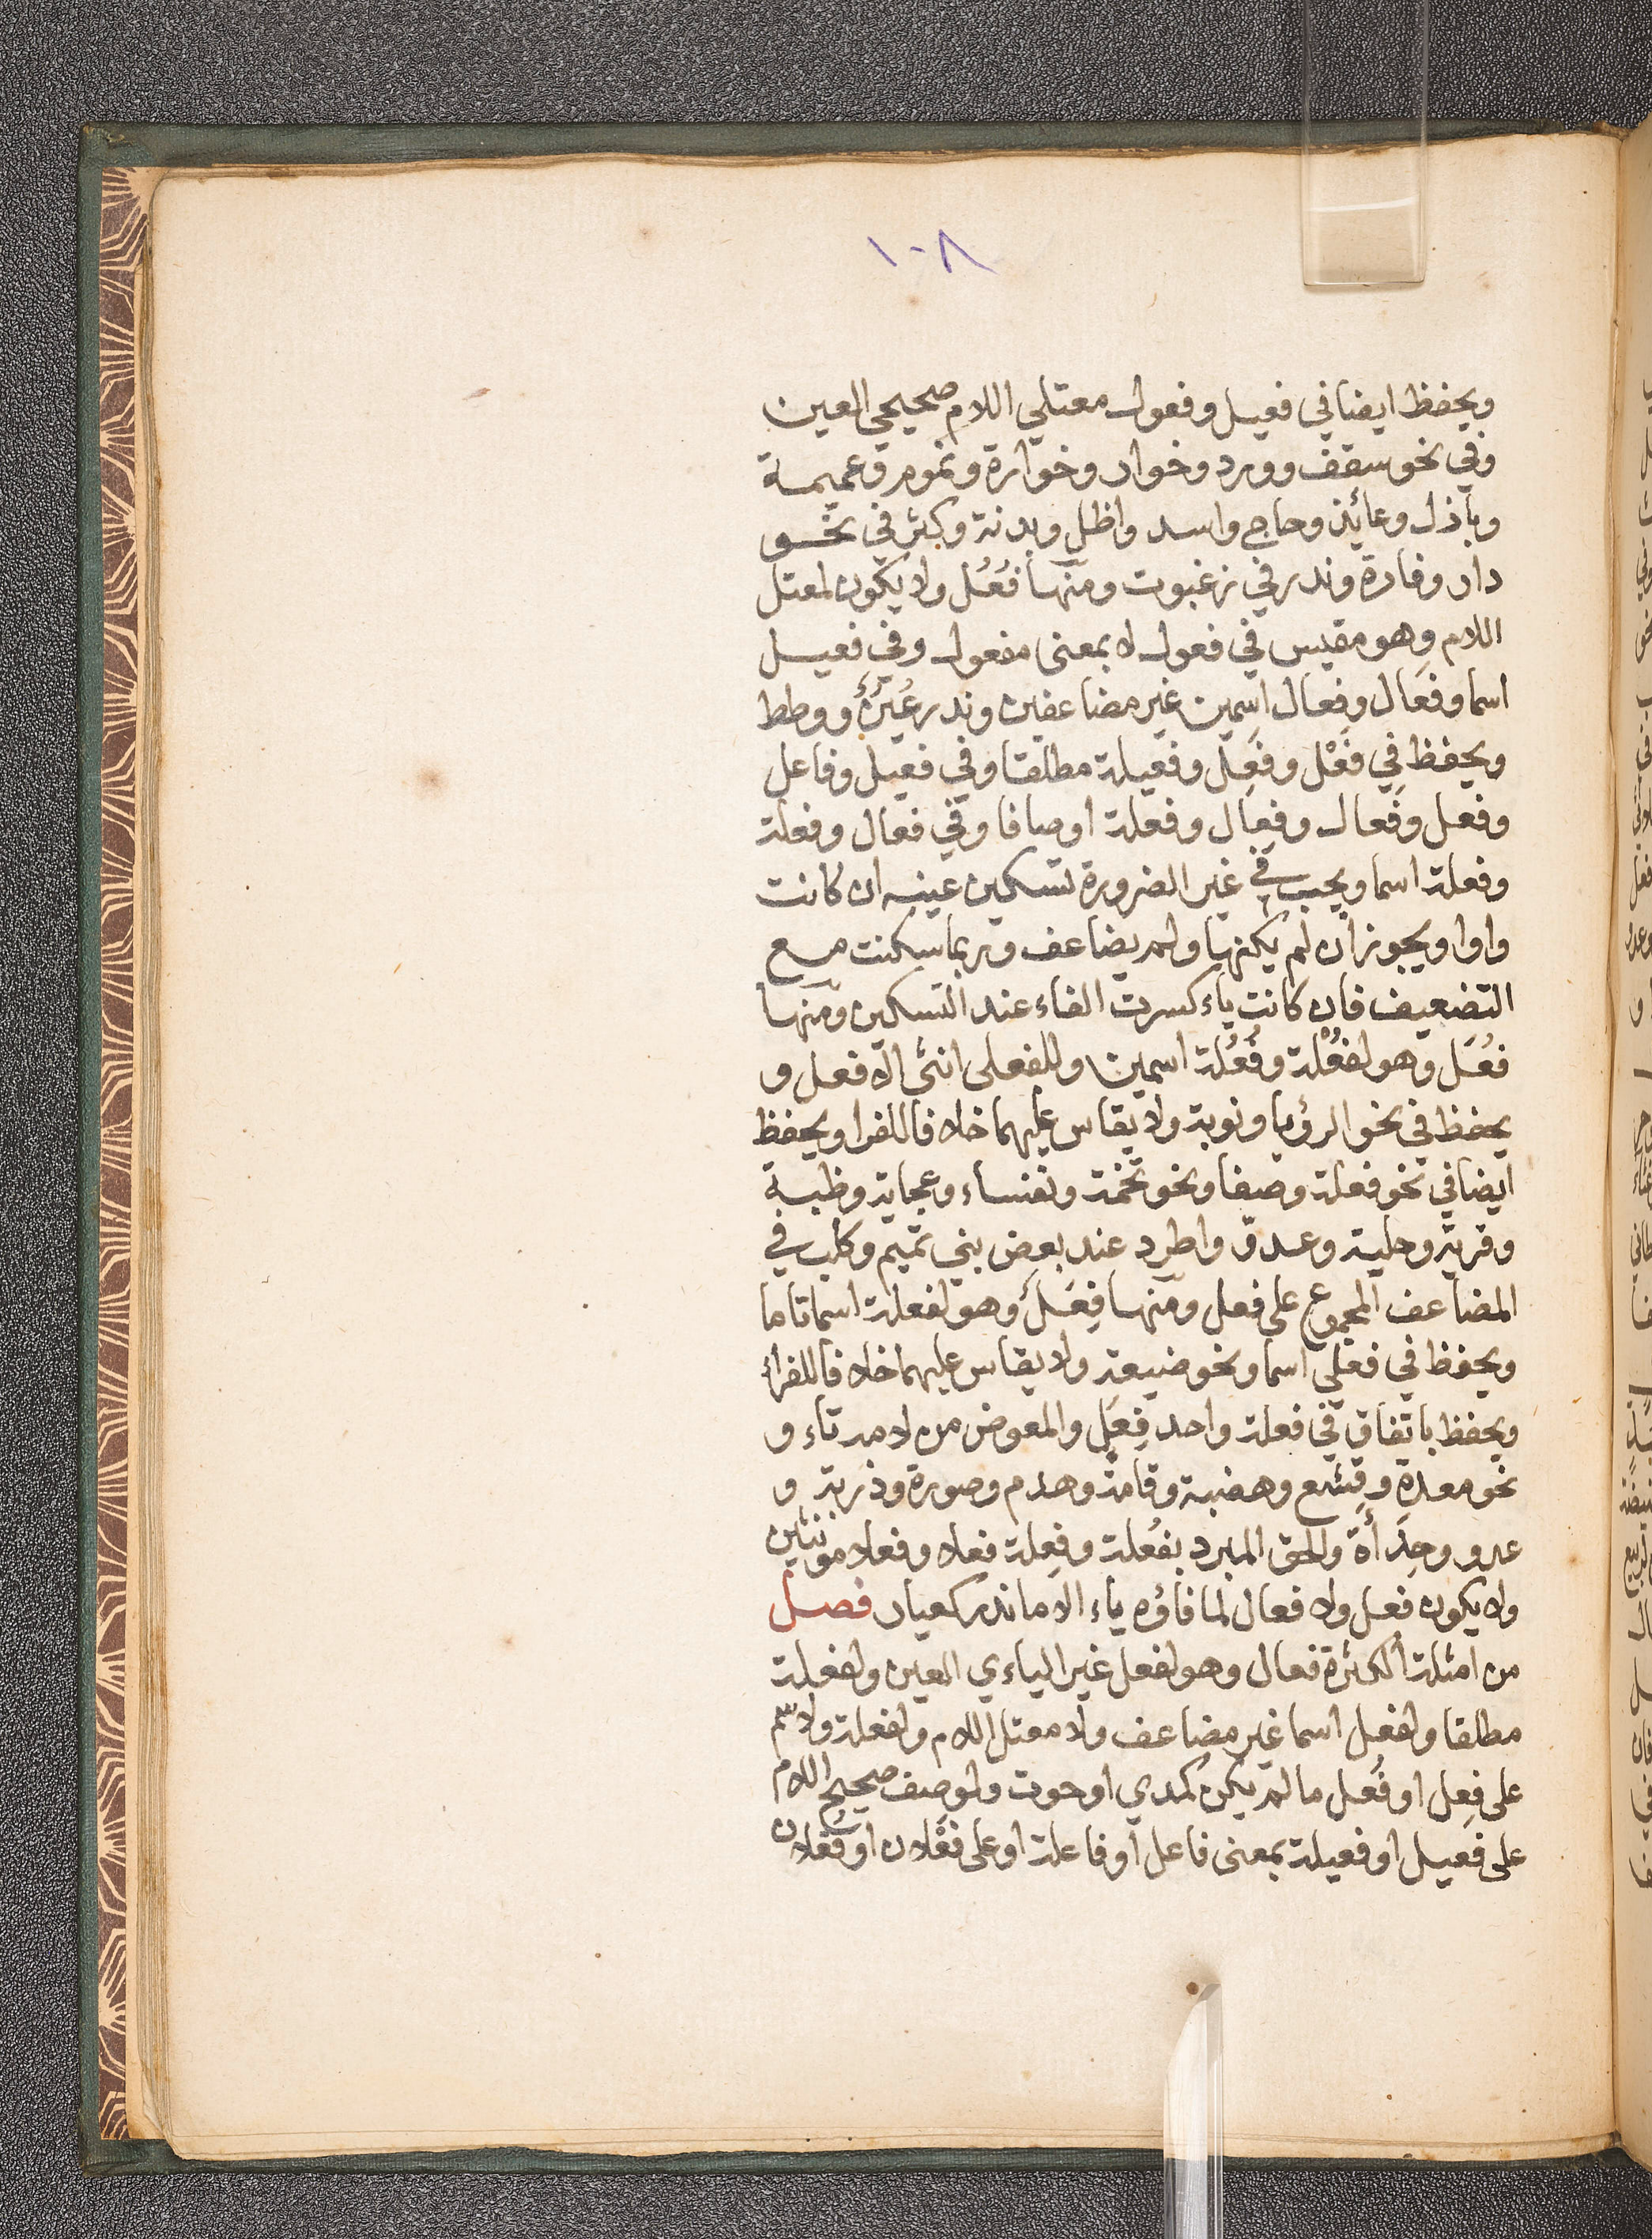 ١٠٨
ويحفظ ايضا في فعيل وفعول معتلي اللام صحيحي العين
وفي نحو سقف وورد وخوار وخوارة ونموم وعميمة
وبازل وعائذ وحاج واسد واظل وبدنة وكثر في نحو
دار وفارة وندر في زغبوت ومنها فُعُل ولا يكون لمعتل
اللام وهو مقيس في فعول لا بمعنى مفعول وفي فعيل
اسما وفعال وفعال اسمين غير مضاعفين وندر عُنُن ووطط
ويحفظ في فَعْل وفَعِل وفعيلة مطلقا وفي فعيل وفاعل
وفعل وفَعال وفِعال وفعلة اوصافا وفي فعال وفعلة
وفعلة اسما ويجب في غير الضرورة تسكين عينه ان كانت
واوا ويجوز ان لم يكنها ولم يضاعف وربما سكنت مع
التضعيف فان كانت ياء كسرت الفاء عند التسكين ومنها
فُعَل وهو لفُعْلة وفُعُلة اسمين وللفعلى انثى الافعل و
يحفظ في نحو الرؤيا ونوبة ولا يقاس عليهما خلافا للفرا ويحفظ
ايضا في نحو فعلة وصفا ونحو تخمة ونفساء وعجاية وظبة
وقرية وحلية وعدوّ واطرد عند بعض بني تميم وكلب في
المضاعف المجموع على فعل ومنها فِعَل وهو لفعلة اسما تاما
ويحفظ في فعلى اسما ونحو ضيعة ولا يقاس عليهما خلافا للفراء
ويحفظ باتفاق في فعلة واحد فِعَل والمعوض من لامه تاء و
نحو معدة وقشع وهضبة وقامة وهدم وصورة وذربة و
عدو وحِدَأة والحق المبرد بفُعلة وفِعلة فعلا وفعلا مونثين
ولا يكون فعل ولا فعال لما فاؤه ياء الا ما ندر كيعار فصل
من امثلة الكثرة فعال وهو لفعل غير الياءي العين ولفعلة
مطلقا ولفعل اسما غير مضاعف ولا معتل اللام ولفعلة ولاسم
على فِعل او فُعل ما لم يكن كمدي او حوت ولوصف صحيح اللام
على فعيل او فعيلة بمعنى فاعل او فاعلة او على فَعْلان او فُعلان